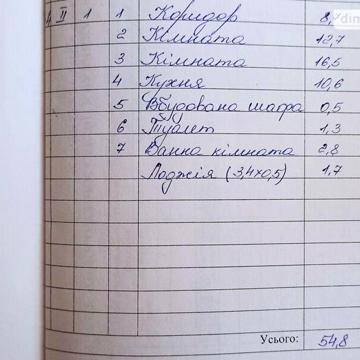 4 II 1 1 Коридор 8,
2 Кімната 12,7
3 Кімната 16,5
4 Кухня 10,6
5 Вбудована шафа 0,5
6 Туалет 1,3
7 Ванна кімната 2,8
Лоджія (3,4х0,5) 1,7
Усього: 54,8